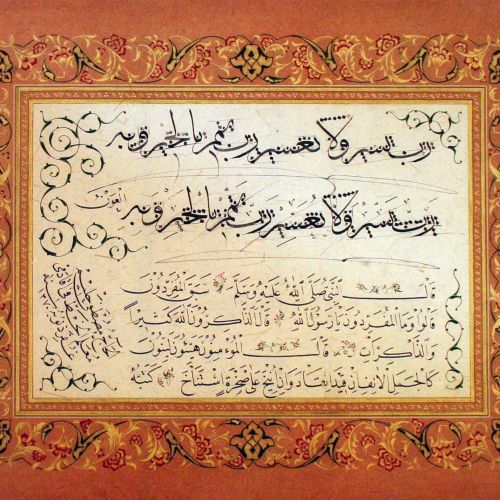 رب يسر ولا تعسر رب تمم بالخير وبه
رب يسر ولا تعسر رب تمم بالخير وبه
العون
قَالَ النَّبِيُّ صَلَّى اللّٰهُ عَلَيْهِ وَسَلَّمَ سَبَقَ الْمُفَرِّدُونَ
قَالُوا وَمَا الْمُفَرِّدُونَ يَا رَسُولَ اللّٰهِ قَالَ الذَّاكِرُونَ اللّٰهَ كَثِيرًا
وَالذَّاكِرَاتُ قَالَ الْمُؤْمِنُونَ هَيِّنُونَ لَيِّنُونَ
كَالْجَمَلِ الْاَنِفِ اِنْ قِيدَ انْقَادَ وَاِنْ اُنِيخَ عَلَى صَخْرَةٍ اسْتَنَاخَ كتبه